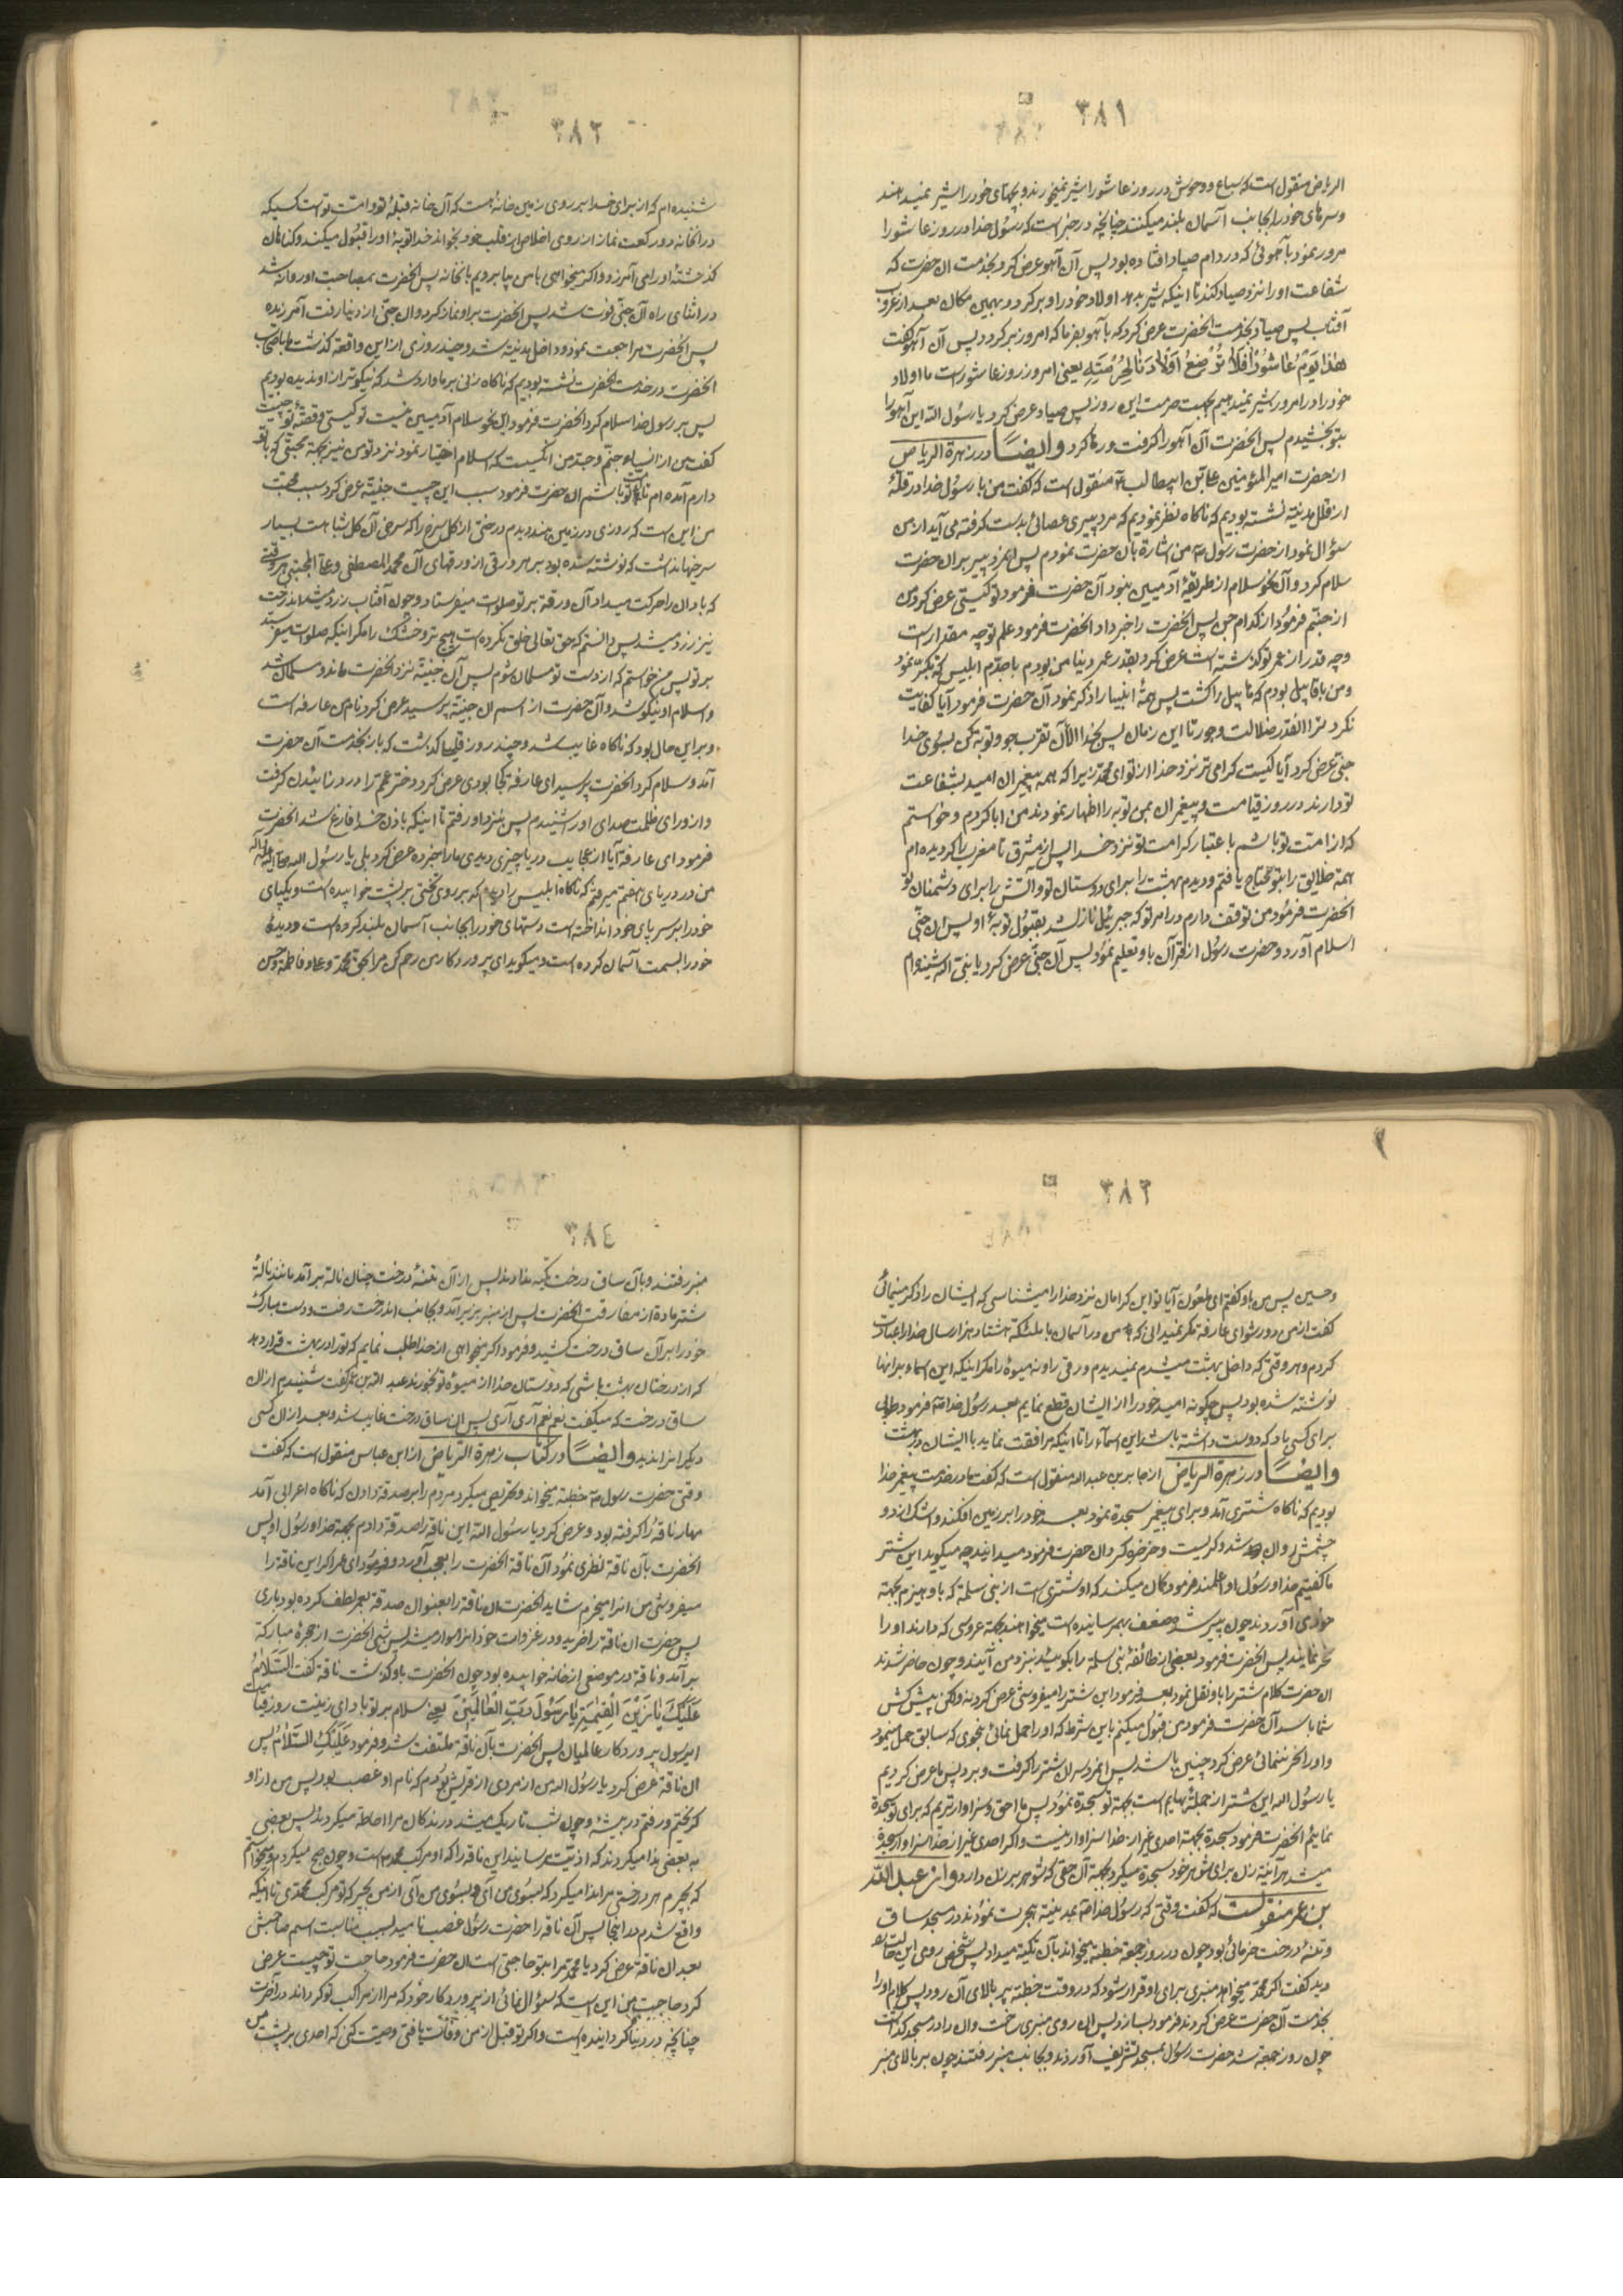 ٣٨١
الریاض منقول است که سباع و وحوش در روز عاشورا شیر نمیخورند و بچهای خود را شیر نمیدهند
و سرهای خود را بجانب آسمان بلند میکنند چنانچه در خبر است که رسول خدا در روز عاشورا
مرور نمود با آهوئی که در دام صیاد افتاده بود پس آن آهو عرض کرد بخدمت آن حضرت که
شفاعت او را نزد صیاد کند تا اینکه شیر بدهد اولاد خود را و برگردد بهمین مکان بعد از غروب
آفتاب پس صیاد بخدمت آنحضرت عرض کرد که باآهو بفرما که امروز برگردد پس آن آهو گفت
هٰذا یَوْمُ عاشُورٰا فَلا تُرْضِعُ اَوْلادَنٰا لِحُرْمَتِهِ یعنی امروز روز عاشورا است ما اولاد
خود را در امروز شیر نمیدهیم بجهت حرمت این روز پس صیاد عرض کرد یا رسول الله این آهو را
بتو بخشیدم پس آنحضرت آن آهو را گرفت و رها کرد وایضاً در زهرة الریاض
از حضرت امیر المؤمنین علی بن ابیطالب منقول است که گفت من با رسول خدا در قلهٔ
از قلل مدینه نشسته بودیم که ناگاه نظر نمودیم که مرد پیری عصائی بدست گرفته می آید از من
سؤال نمود از حضرت رسول من اشاره بآن حضرت نمودم پس آنمرد پیر بر آن حضرت
سلام کرد و آن نحو سلام از طریقهٔ آدمیین نبود آن حضرت فرمود تو کیستی عرض کرد من
از جنیم فرمود از کدام جن پس آنحضرت را خبر داد آنحضرت فرمود علم تو چه مقدار است
و چه قدر از عمر تو گذشته است عرض کرد بقدر عمر دنیا من بودم با جدم ابلیس که تکبر نمود
و من با قابیل بودم که هابیل را کشت پس همهٔ انبیا را ذکر نمود آن حضرت فرمود آیا کفایت
نکرد ترا اینقدر ضلالت و جور تا این زمان پس بخدا الآن تقرب جو و توبه کن بسوی خدا
جنی عرض کرد آیا کیست گرامی تر نزد خدا از تو ای محمد زیرا که همه پیغمبران امید بشفاعت
تو دارند در روز قیامت و پیغمبران بمن توبه را اظهار نمودند من ابا کردم و خواستم
که از امت تو باشم باعتبار کرامت تو نزد خدا پس از مشرق تا مغرب را گردیده ام
همه خلایق را بتو محتاج یافتم و دیدم بهشت را برای دوستان تو و آتش را برای دشمنان تو
آنحضرت فرمود من توقف دارم در امر تو که جبرئیل نازل شد بقبول توبهٔ او پس آن جنی
اسلام آورد و حضرت رسول از قرآن باو تعلیم نمود پس آن جنی عرض کرد یا نبی الله شنیده ام
٣٨٢
شنیده ام که از برای خدا بر روی زمین خانه ایست که آن خانه قبلهٔ تو و امت تو است کسیکه
در آنخانه دو رکعت نماز از روی اخلاص از قلب خود بخواند خدا توبهٔ او را قبول میکند و گناهان
گذشتهٔ او را می آمرزد و اگر میخواهی با من بیا برویم بآنخانه پس آنحضرت بمصاحبت او روانه شد
در اثنای راه آن جنی فوت شد پس آنحضرت بر او نماز کرد و آن جنی از دنیا رفت آمرزیده
پس آنحضرت مراجعت نمود و داخل مدینه شد و چند روزی از این واقعه گذشت با اصحاب
آنحضرت در خدمت آنحضرت نشسته بودیم که ناگاه زنی بر ما وارد شد که نیکوتر از او ندیده بودیم
پس بر رسول خدا سلام کرد آنحضرت فرمود این نحو سلام آدمیین نیست تو کیستی و قصهٔ تو چیست
گفت من از نساء جنیم و جد من آنکسیست که اسلام اختیار نمود نزد تو من نیز بجهة محبتی که با تو
دارم آمده ام تا با تو باشم آن حضرت فرمود سبب این چیست جنیه عرض کرد سبب محبت
من این است که روزی در زمین هند دیدم درختی از گل سرخ را که سرخی آن گل شباهت بسیار
سرخیها نداشت که نوشته شده بود بر هر ورقی از ورقهای آن محمد المصطفی و علی المجتبی هر وقتی
که باد آن را حرکت میداد آن ورقه بر تو صلوات میفرستاد و چون آفتاب زرد میشد آندرخت
نیز زرد میشد پس دانستم که حق تعالی خلق نکرده است هیچ تر و خشک را مگر اینکه صلوات میفرستد
بر تو پس من خواستم که از دست تو مسلمان شوم پس آن جنیه نزد آنحضرت ماند و مسلمان شد
و اسلام او نیکو شد و آن حضرت از اسم آن جنیه پرسید عرض کرد نام من عارفه است
و بر این حال بود که ناگاه غایب شد و چند روز گذشت که باز بخدمت آن حضرت
آمد و سلام کرد آنحضرت پرسید ای عارفه کجا بودی عرض کرد دختر عمم را درد زائیدن گرفت
و از ورای ظلمت صدای او را شنیدم پس نزد او رفتم تا اینکه باذن خدا فارغ شد آنحضرت
فرمود ای عارفه آیا از عجایب دریا چیزی دیدی ما را خبر ده عرض کرد بلی یا رسول الله صلی الله علیه و آله
من در دریای هفتم میرفتم که ناگاه ابلیس را دیدم که بر روی تختی بر پشت خوابیده است و یکپای
خود را بر سر پای خود انداخته است و دستهای خود را بجانب آسمان بلند کرده است و دیدهٔ
خود را بسمت آسمان کرده است و میگوید ای پروردگار من رحم کن مرا بحق محمد و علی و فاطمه و حسن
٣٨٣
و حسین پس من باو گفتم ای ملعون آیا تو این گرامان نزد خدا را میشناسی که ایشان را ذکر مینمائی
گفت از من دور شو ای عارفه مگر نمیدانی که من در آسمان با ملئکه هشتاد هزار سال خدا را عبادت
کردم و هر وقتی که داخل بهشت میشدم نمیدیدم ورقی را و نه میوهٔ را مگر اینکه این اسماء بر آنها
نوشته شده بود پس چگونه امید خود را از ایشان قطع نمایم بعد رسول خدا فرمود طوبی
برای کسی باد که دوست داشته باشد این اسماء را تا اینکه مرافقت نماید با ایشان در بهشت
وایضاً در زهرة الریاض از جابر بن عبد الله منقول است که گفت در خدمت پیغمبر خدا
بودیم که ناگاه شتری آمد و برای پیغمبر سجده نمود بعد خود را بر زمین افکند و اشک از دو
چشمش روان شد و گریست و خرخره کرد آن حضرت فرمود میدانید چه میگوید این شتر
ما گفتیم خدا و رسول او اعلمند فرمود گمان میکند که او شتری است از بنی سلمه که باو هیزم بجهة
خودی آوردند چون پیر شد و ضعف بهم رسانیده است میخواهند بجهة عروسی که دارند او را
نحر نمایند پس آنحضرت فرمود بعضی از طائفهٔ بنی سلمه را بگوئید نزد من آیند و چون حاضر شدند
آن حضرت کلام شتر را باو نقل نمود بعد فرمود این شتر را میفروشی عرض کرد نه ولکن پیش کش
شما باشد آن حضرت فرمود من قبول میکنم باین شرط که او را حمل نمائی بنحوی که سابق حمل مینمود
و او را نحر ننمائی عرض کرد چنین باشد پس آنمرد سر آن شتر را گرفت و برد پس ما عرض کردیم
یا رسول الله این شتر از جملهٔ بهایم است بجهة تو سجده نمود پس ما احق و سزاوارتریم که برای تو سجده
نمائیم آنحضرت فرمود سجده بجهة احدی غیر از خدا سزاوار نیست و اگر احدی غیر از خدا سزاوار سجده
میشد هر آینه زن برای شوهر خود سجده میکرد بجهة آن حقی که شوهر بر زن دارد و از عبد الله
بن عمر منقولست که گفت وقتی که رسول خدا بمدینه هجرت نمودند در مسجد ساق
و تنهٔ درخت خرمائی بود چون در روز جمعه خطبه میخواند بآن تکیه میداد پس شخص رومی این حالت را
دید گفت اگر محمد میخواهد منبری برای او قرار شود که در وقت خطبه بر بالای آن رود پس کلام او را
بخدمت آن حضرت عرض کردند فرمود بسازد پس آن رومی منبری ساخت و آن را در مسجد گذاشت
چون روز جمعه شد حضرت رسول بمسجد تشریف آوردند و بجانب منبر رفتند چون بر بالای منبر
٣٨٤
منبر رفتند و بآن ساق درخت تکیه ندادند پس از آن تنهٔ درخت چنان ناله برآمد مانند نالهٔ
شتر ماده از مفارقت آنحضرت پس از منبر بزیر آمد و بجانب آندرخت رفت و دست مبارک
خود را بر آن ساق درخت کشید و فرمود اگر میخواهی از خدا طلب نمایم که تو را در بهشت قرار دهد
که از درختان بهشت باشی که دوستان خدا از میوهٔ تو بخورند عبد الله بن عمر گفت شنیدم از آن
ساق درخت که میگفت نعم نعم آری آری پس آن ساق درخت غایب شد و بعد از آن کسی
دیگر آنرا ندید وایضاً در کتاب زهرة الریاض از ابن عباس منقول است که گفت
وقتی حضرت رسول خطبه میخواند و تحریص میکرد مردم را بر صدقه دادن که ناگاه اعرابی آمد
مهار ناقهٔ را گرفته بود و عرض کرد یا رسول الله این ناقه را صدقه دادم بجهة خدا و رسول او پس
آنحضرت بآن ناقه نظری نمود آن ناقه آنحضرت را بعجب آورد و فرمود ای عمر اگر این ناقه را
میفروشی من آنرا میخرم شاید آنحضرت آن ناقه را بعنوان صدقه بعمر لطف کرده بود باری
پس حضرت آن ناقه را خرید و در غزوات خود آنرا سوار میشد پس شبی آنحضرت از حجرهٔ مبارکه
برآمد و ناقه در موضعی از خانه خوابیده بود چون آنحضرت باو گذشت ناقه گفت اَلسَّلامُ
عَلَیْکَ یا زَیْنَ الْقِیٰمَةِ یا رَسُولَ رَبِّ الْعالَمینَ یعنی سلام بر تو باد ای زینت روز قیامت
ای رسول پروردگار عالمیان پس آنحضرت بآن ناقه ملتفت شد و فرمود عَلَیْکِ السَّلامُ پس
آن ناقه عرض کرد یا رسول الله من از مردی از قریش بودم که نام او غضب بود پس من از او
گریختم و رفتم در بیشهٔ و چون شب تاریک میشد درندگان مرا احاطه میکردند پس بعضی
به بعضی ندا میکردند که اذیت نرسانید این ناقه را که او مرکب محمد است و چون صبح میکردم و میخواستم
که بچرم هر درختی مرا ندا میکرد که بسوی من آی و بسوی من آی از من بچر که تو مرکب محمدی تا اینکه
واقع شدم در اینجا پس آن ناقه را حضرت رسول غضبا نامید بسبب مناسبت اسم صاحبش
بعد آن ناقه عرض کرد یا محمد مرا بتو حاجتی است آن حضرت فرمود حاجت تو چیست عرض
کرد حاجت من این است که سؤال نمائی از پروردگار خود که مرا از مراکب تو گرداند در آخرت
چنانچه در دنیا گردانیده است و اگر تو قبل از من وفات یافتی وصیت کنی که احدی بر پشت من